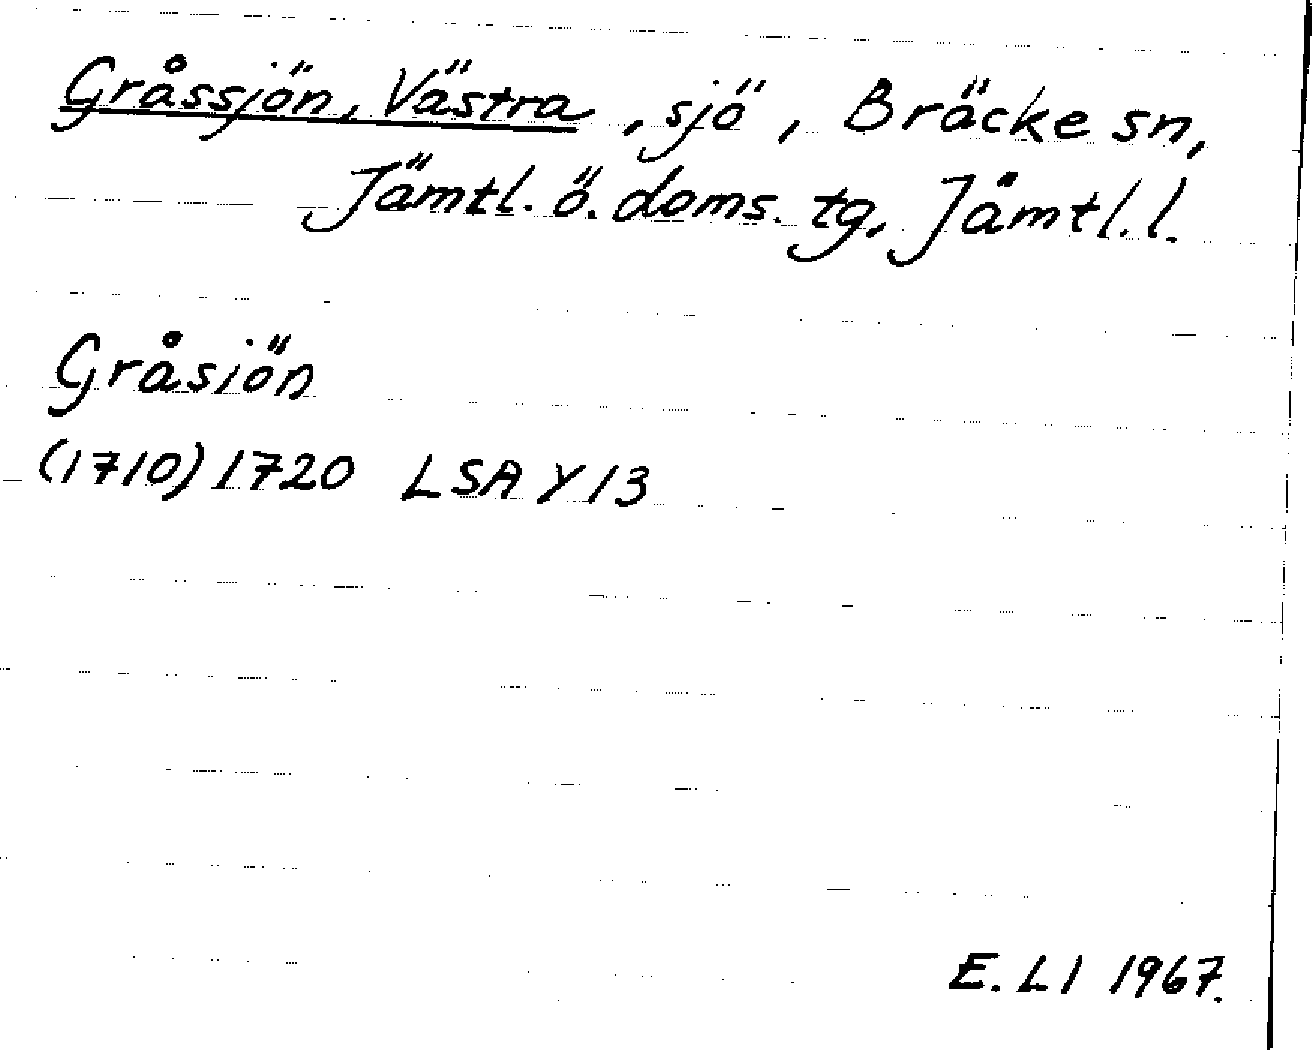 Gråssjön, Västra, sjö, Bräcke sn,
Jämtl. ö. doms. tg, Jämtl. l.
Gråsiön
(1710) 1720 LSA Y 13
E. LI 1967.